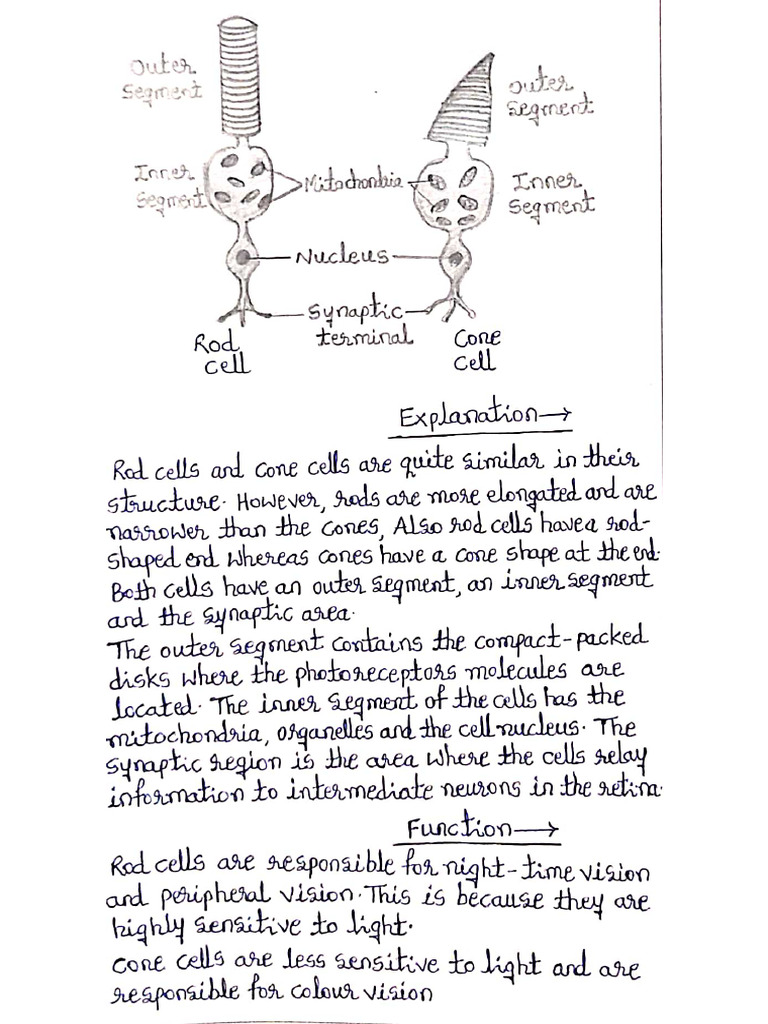 Outer
Segment
Outer
Segment
Inner
Segment
Mitochondria
Inner
Segment
Nucleus
Synaptic
terminal
Rod
cell
Cone
cell
Explanation→
Rod cells and cone cells are quite similar in their
structure. However, rods are more elongated and are
narrower than the cones, Also rod cells have a rod-
shaped end whereas cones have a cone shape at the end.
Both cells have an outer segment, an inner segment
and the synaptic area.
The outer segment contains the compact-packed
disks where the photoreceptors molecules are
located. The inner segment of the cells has the
mitochondria, organelles and the cell nucleus. The
synaptic region is the area where the cells relay
information to intermediate neurons in the retina.
Function→
Rod cells are responsible for night-time vision
and peripheral vision. This is because they are
highly sensitive to light.
Cone cells are less sensitive to light and are
responsible for colour vision